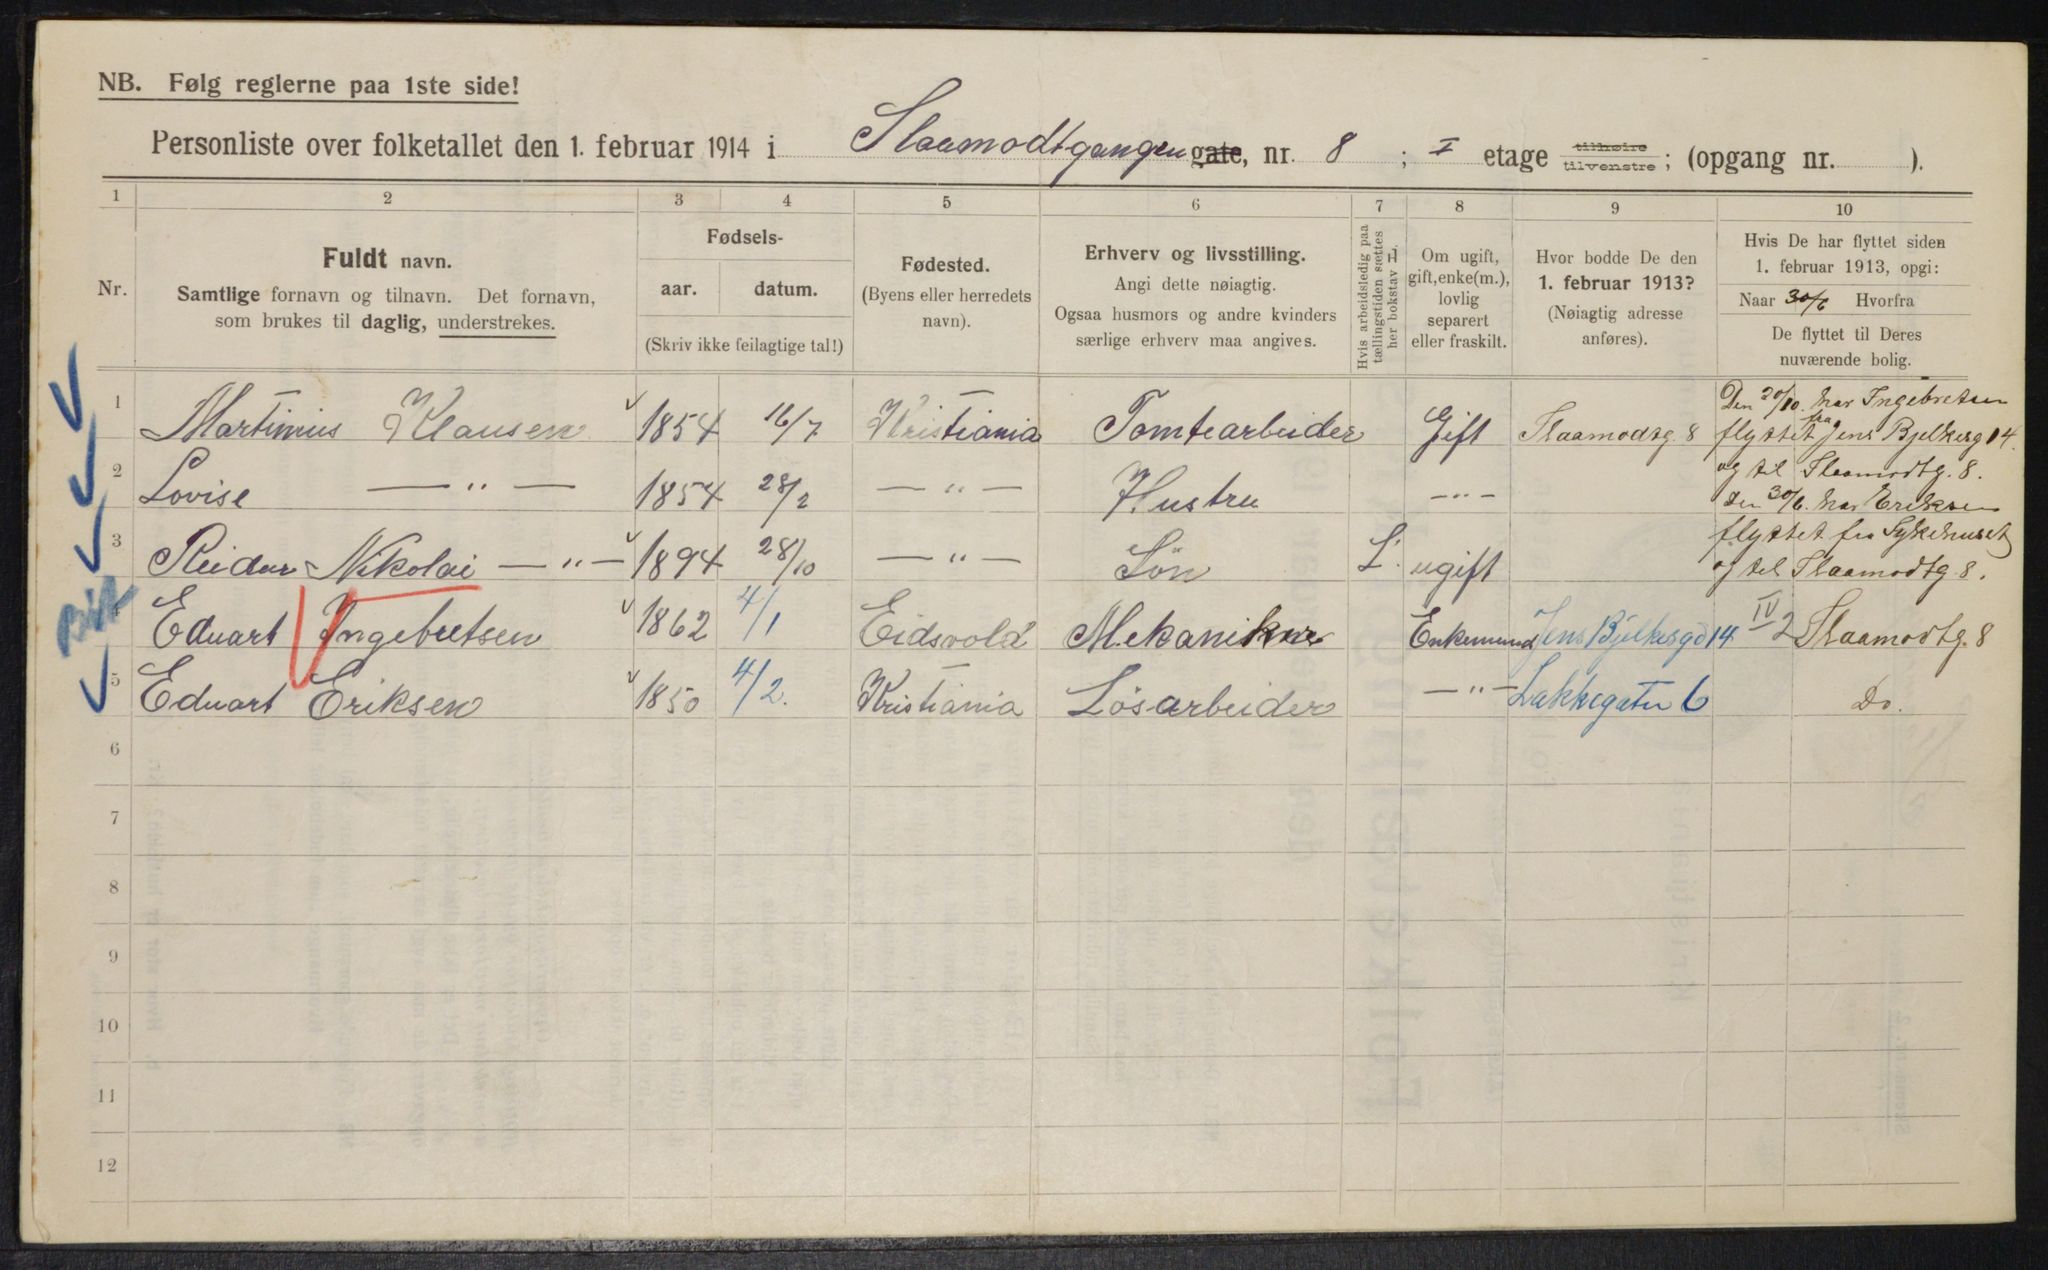 NB. Følg reglerne paa 1ste side!
Personliste over folketallet den 1. februar 1914 i Slaamodtgangen gate, nr. 8 ; I etage tilhøire tilvenstre ; (opgang nr. ).
1 2 3 4 5 6 7 8 9 10
Nr.
Fuldt navn.
Samtlige fornavn og tilnavn. Det fornavn,
som brukes til daglig, understrekes.
Fødsels-
aar. datum.
(Skriv ikke feilagtige tal!)
Fødested.
(Byens eller herredets
navn).
Erhverv og livsstilling.
Angi dette nøiagtig.
Ogsaa husmors og andre kvinders
særlige erhverv maa angives.
Hvis arbeidsledig paa
tællingstiden sættes
her bokstav L.
Om ugift,
gift, enke(m.),
lovlig
separert
eller fraskilt.
Hvor bodde De den
1. februar 1913?
(Nøiagtig adresse
anføres).
Hvis De har flyttet siden
1. februar 1913, opgi:
Naar 30/6 Hvorfra
De flyttet til Deres
nuværende bolig.
1 Martinius Klausen 1854 16/7 Kristiania Tomtearbeider Gift Slaamodtg. 8
Den 20/10. har Ingebretsen
flyttet fra Jens Bjelkesg 14.
2 Lovise — " — 1854 28/2 — " — Hustru — " —
og til Slaamodtg. 8.
den 30/6. har Eriksen
3 Reidar Nikolai — " — 1894 28/10 — " — Sön L. ugift
flyttet fra Sykehuset
og til Slaamodtg. 8.
4 Eduart Ingebretsen 1862 4/1 Eidsvold Mekaniker Enkemand Jens Bjelkesgd 14 IV 2 Slaamodtg. 8
5 Eduart Eriksen 1850 4/2. Kristiania Lösarbeider — " — Lakkegaten 6 Do.
6
7
8
9
10
11
12